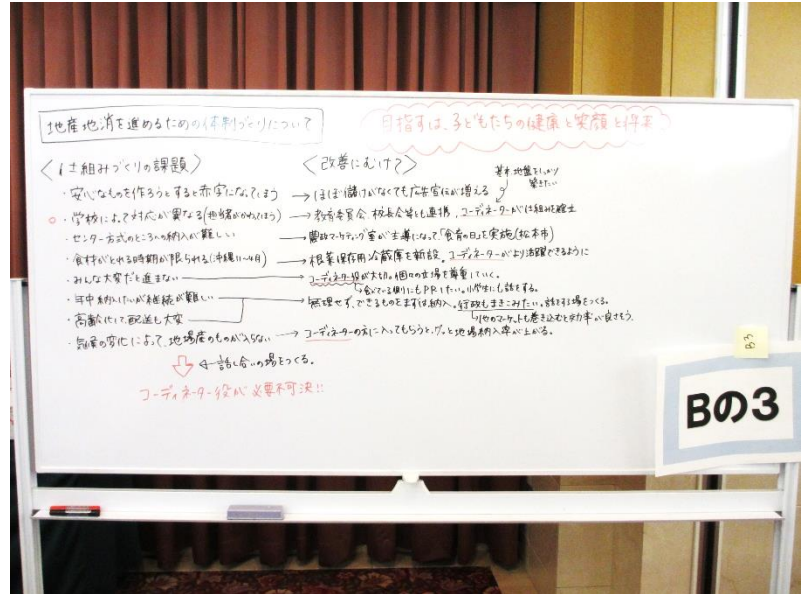 地産地消を進めるための体制づくりについて
目指すは、子どもたちの健康と笑顔と
〈仕組みづくりの課題〉
〈改善にむけて〉
基本、地盤をしっかり
築きたい
・安心なものを作ろうとすると赤字になってしまう → ほぼ儲けがなくても広告宣伝が増える
○・学校によって対応が異なる → 教育委員会、校長会等とも連携、コーディネーターが仕組みを確立
・センター方式のところへの納入が難しい → 農政マーケティング室が主導になって「食育の日」を実施(松本市)
・食材がとれる時期が限られる(沖縄11〜4月) → 根菜保存用冷蔵庫を新設。コーディネーターがより活躍できるように
・みんな大変だと進まない → コーディネーター役が大切。個々の立場を尊重していく。
→食べている側にもPRしたい。小学生にも話をする。
・年中納入したいが継続が難しい
・高齢化して配送も大変
無理せず、できるものをまずは納入。行政もまきこみたい。話をする場をつくる。
マーケットも巻き込むと効率が良さそう。
・気候の変化によって、地場産のものが入らない → コーディネーターの方に入ってもらうと、グッと地場納入率が上がる。
⇩ ← 話し合いの場をつくる。
コーディネーター役が必要不可決!!
B3
Bの3